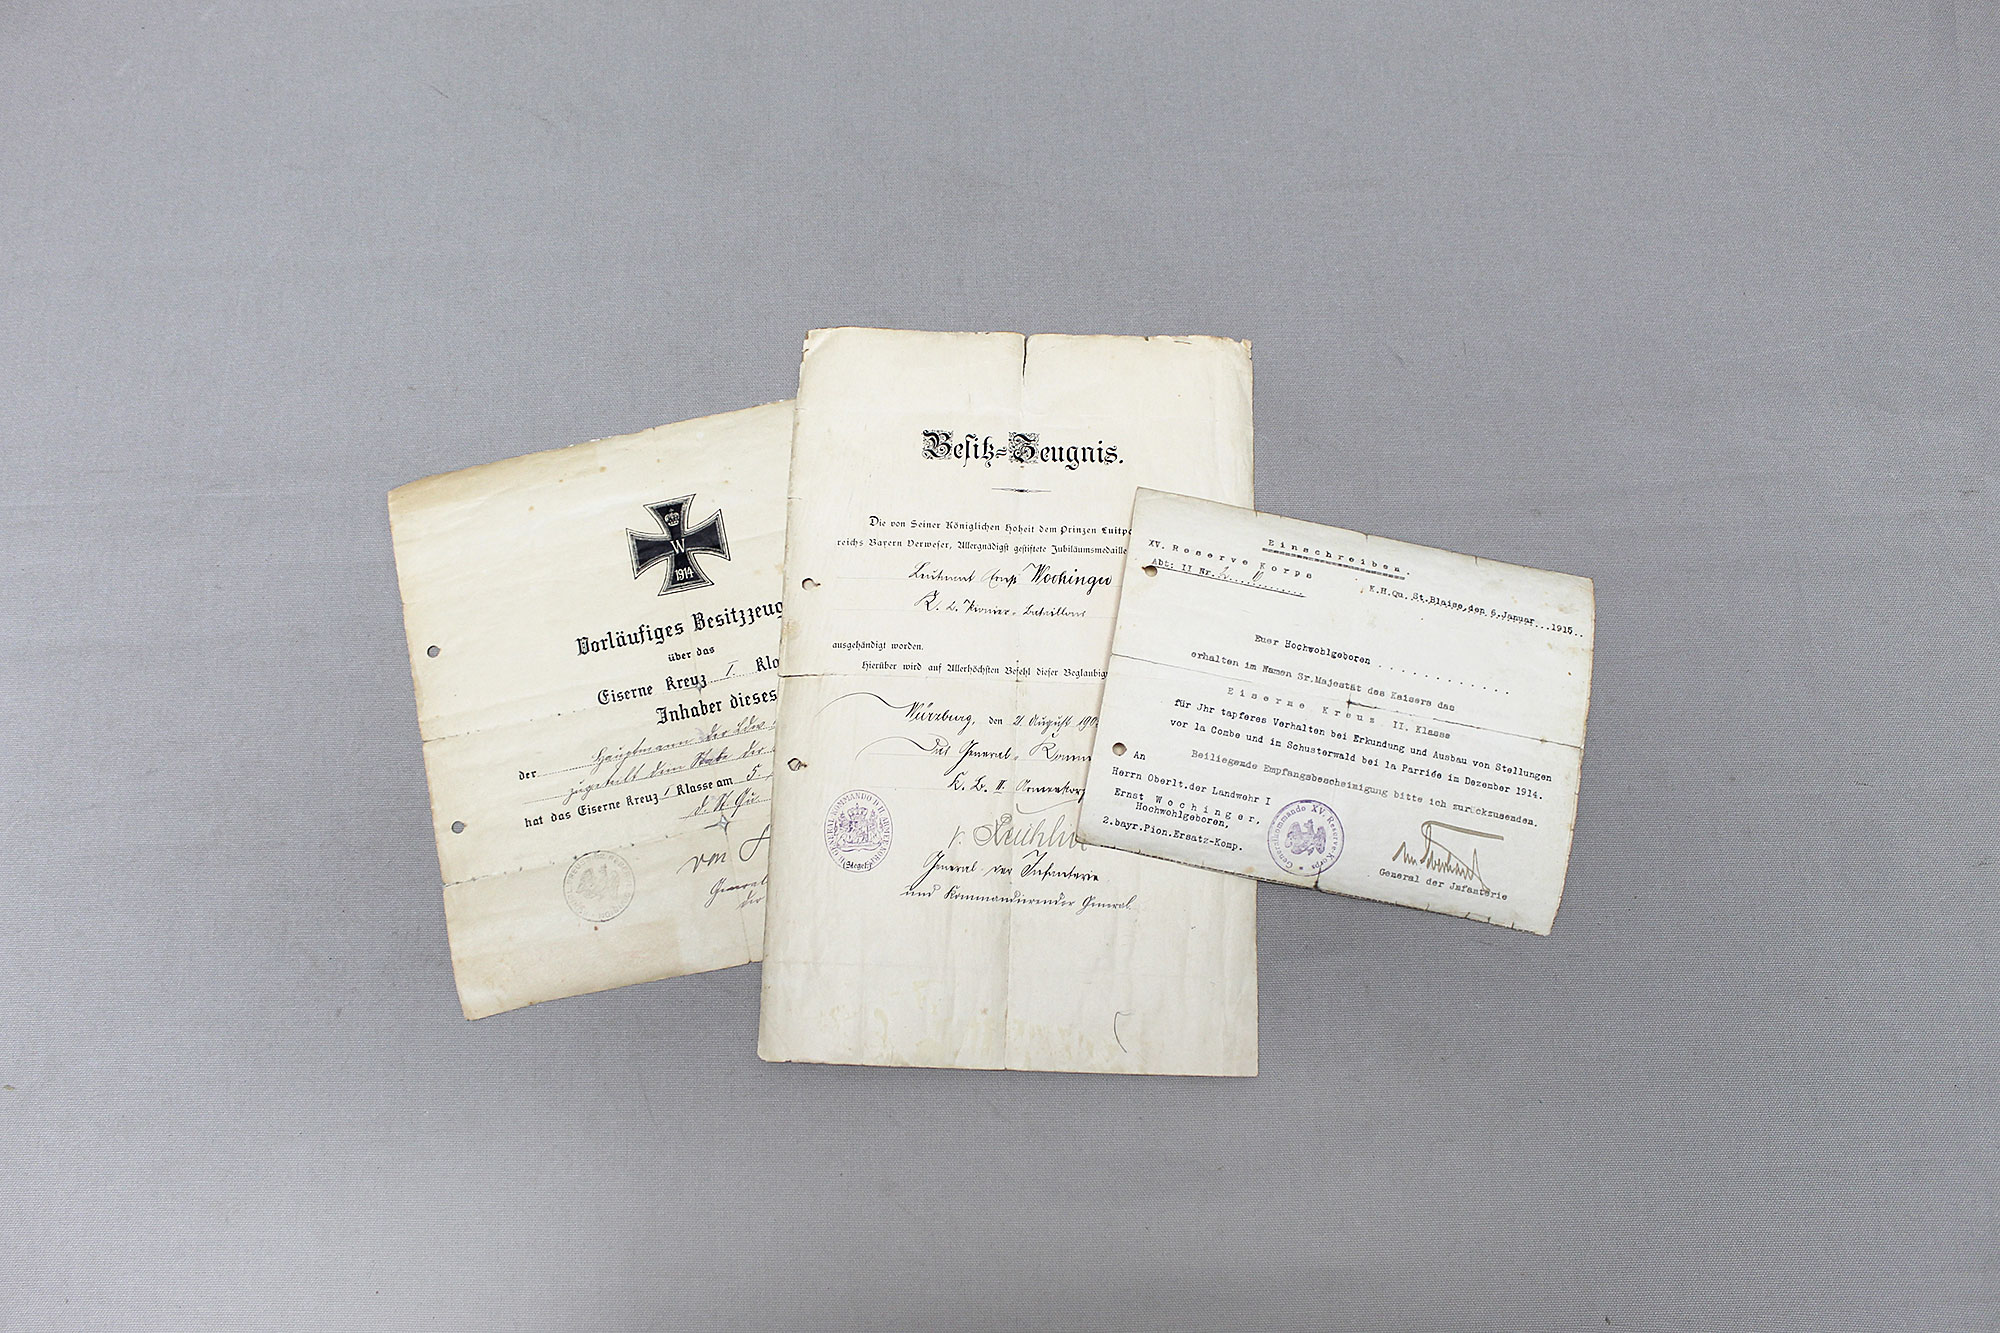 W
1914
Vorläufiges Besitzzeug
über das
Eiserne Kreuz I. Kla
Inhaber dieses
der Hauptmann der Ldw.
zugeteilt dem Stabe der
hat das Eiserne Kreuz I Klasse am 5.
d. St. Qu
von
General
der
Besitz-Zeugnis.
Die von Seiner Königlichen Hoheit dem Prinzen Luitpo
reichs Bayern Verweser, Allergnädigst gestiftete Jubiläumsmedaille
Leutnant Ernst Wochinger
K. B. Pionier-Bataillons
ausgehändigt worden.
Hierüber wird auf Allerhöchsten Befehl dieser Beglaubig
Würzburg, den 21 August 190
Das General-Komm
K. B. II. Armeekorp
GENERAL KOMMANDO II. ARMEE-KORPS
(Siegel)
General der Infanterie
und Kommandierender General.
Einschreiben.
XV. Reserve Korps
Abt: II Nr.
K.H.Qu. St.Blaise, den 6.Januar 1915.
Euer Hochwohlgeboren
erhalten im Namen Sr.Majestät des Kaisers das
Eiserne Kreuz II. Klasse
für Jhr tapferes Verhalten bei Erkundung und Ausbau von Stellungen
vor la Combe und im Schusterwald bei la Parride im Dezember 1914.
Beiliegende Empfangsbescheinigung bitte ich zurückzusenden.
An
Herrn Oberlt.der Landwehr I
Ernst Wochinger,
Hochwohlgeboren,
2.bayr.Pion.Ersatz-Komp.
Generalkommando XV. Reserve-Korps
General der Jnfanterie